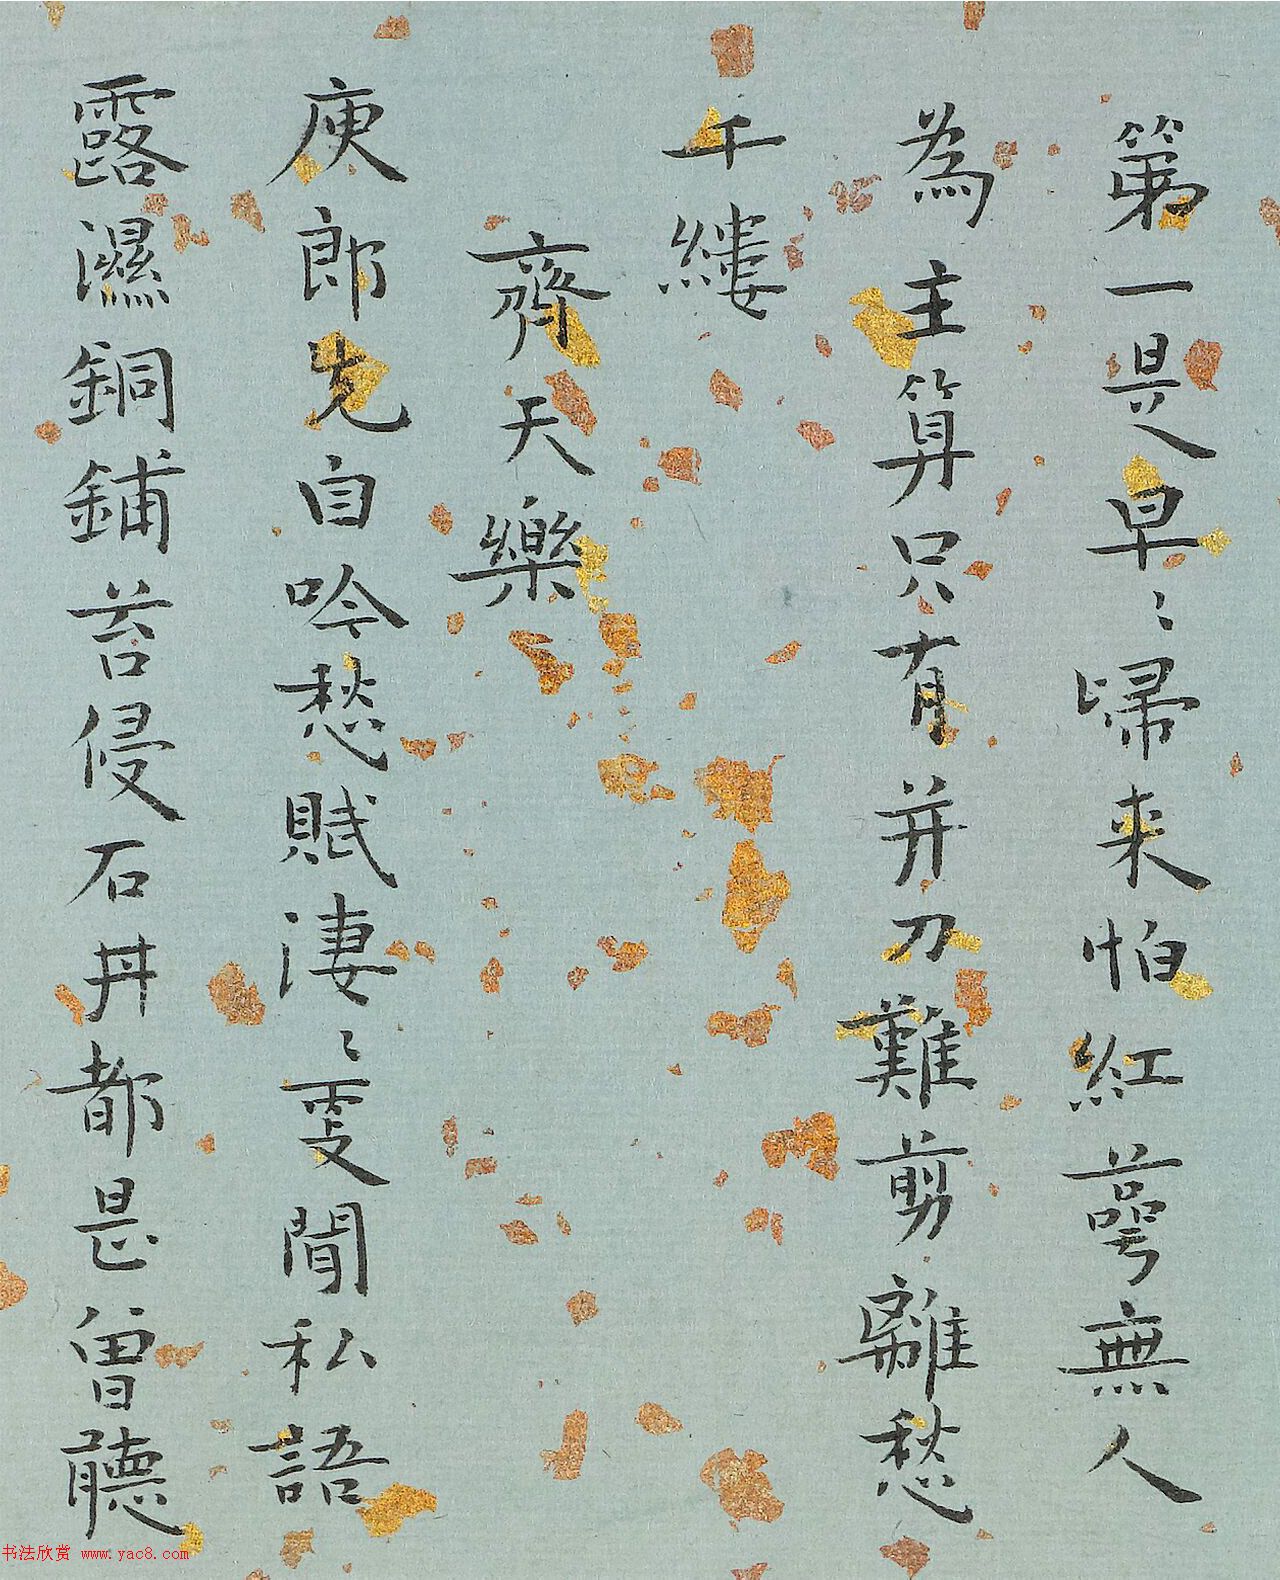 第一是早〻歸来怕紅萼無人
為主算只有并刀難剪離愁
千縷
齊天樂
庾郎先自吟愁賦淒〻更聞私語
露濕銅鋪苔侵石井都是曾聽
书法欣赏 www.yac8.com